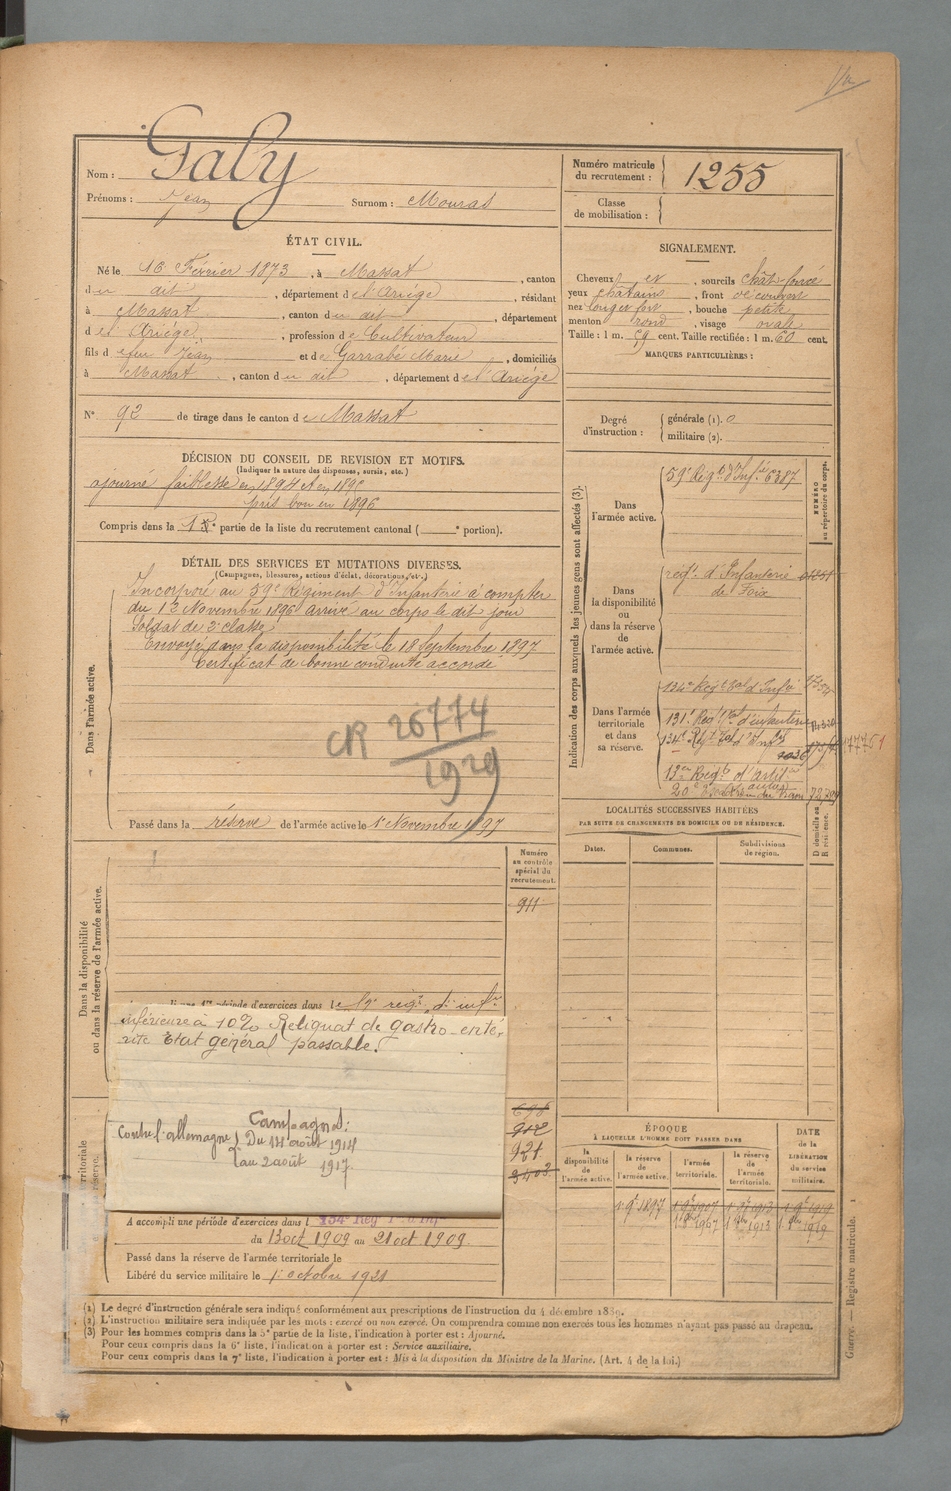 Nom : Galy
Prénoms : Jean Surnom : Mouras
Numéro matricule du recrutement : 1255
Classe de mobilisation :
ÉTAT CIVIL.
Né le 16 Février 1873, à Massat, canton
du dit, département de l'Ariége, résidant
à Massat, canton du dit, département
de l'Ariége, profession de Cultivateur
fils d feu Jean et de Garrabé Marie, domiciliés
à Massat, canton du dit, département de l'Ariége
N° 92 de tirage dans le canton de Massat
SIGNALEMENT.
Cheveux et, sourcils chât. foncé
yeux châtains, front découvert
nez long et fort, bouche petite
menton rond, visage ovale
Taille : 1 m. 59 cent. Taille rectifiée : 1 m. 60 cent.
MARQUES PARTICULIÈRES :
Degré d'instruction : générale (1). 0
militaire (2).
DÉCISION DU CONSEIL DE REVISION ET MOTIFS.
(Indiquer la nature des dispenses, sursis, etc.)
ajourné faiblesse en 1894 et en 1895
pris bon en 1896
Compris dans la 1re partie de la liste du recrutement cantonal ( e portion).
DÉTAIL DES SERVICES ET MUTATIONS DIVERSES.
(Campagnes, blessures, actions d'éclat, décorations, etc.)
Dans l'armée active.
Incorporé au 59e Régiment d'Infanterie à compter
du 12 Novembre 1896 arrivé au corps le dit jour
Soldat de 2e classe
Envoyé dans la disponibilité le 18 Septembre 1897
Certificat de bonne conduite accordé
CR 26774
1929
Passé dans la réserve de l'armée active le 1er Novembre 1897
Indication des corps auxquels les jeunes gens sont affectés (3).
NUMÉRO au répertoire du corps.
Dans l'armée active.
59e Régt d'Infie 6387
Dans la disponibilité ou dans la réserve de l'armée active.
regt. d'Infanterie
de Foix
Dans l'armée territoriale et dans sa réserve.
134e Régt tal d'Infie
131e Régt tal d'infanterie
134e Régt tal d'Infie
177761
LOCALITÉS SUCCESSIVES HABITÉES
PAR SUITE DE CHANGEMENTS DE DOMICILE OU DE RÉSIDENCE.
Dates. Communes. Subdivisions de région. D domicile ou R résidence.
Dans la disponibilité ou dans la réserve de l'armée active.
Numéro au contrôle spécial du recrutement.
911
période d'exercices dans le
inférieure à 10% Reliquat de gastro-enté-
rite Etat général passable.
Campagnes:
Contre l'allemagne Du 14 août 1914
au 2 août 1917
912
921
A accompli une période d'exercices dans l 134e Rég
du 13 oct 1909 au 21 oct 1909.
Passé dans la réserve de l'armée territoriale le
Libéré du service militaire le 1er octobre 1921
ÉPOQUE
À LAQUELLE L'HOMME DOIT PASSER DANS
la disponibilité de l'armée active. la réserve de l'armée active. l'armée territoriale. la réserve de l'armée territoriale.
DATE de la LIBÉRATION du service militaire.
1 9bre 1897 1 9bre 1907 1 9bre 1913 1 9bre 1919
(1) Le degré d'instruction générale sera indiqué conformément aux prescriptions de l'instruction du 4 décembre 1889.
(2) L'instruction militaire sera indiquée par les mots : exercé ou non exercé. On comprendra comme non exercés tous les hommes n'ayant pas passé au drapeau.
(3) Pour les hommes compris dans la 5e partie de la liste, l'indication à porter est : Ajourné.
Pour ceux compris dans la 6e liste, l'indication à porter est : Service auxiliaire.
Pour ceux compris dans la 7e liste, l'indication à porter est : Mis à la disposition du Ministre de la Marine. (Art. 4 de la loi.)
Guerre. — Registre matricule. 1